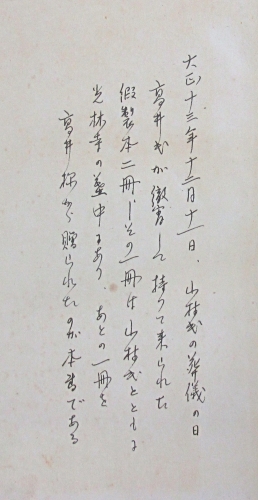 大正十三年十二月十一日、山村氏の葬儀の日
高井氏が徹宵して持つて来られた
假製本二冊、その一冊は山村氏とともに
光林寺の墓中にあり、あとの一冊を
高井様から贈られたのが本書である